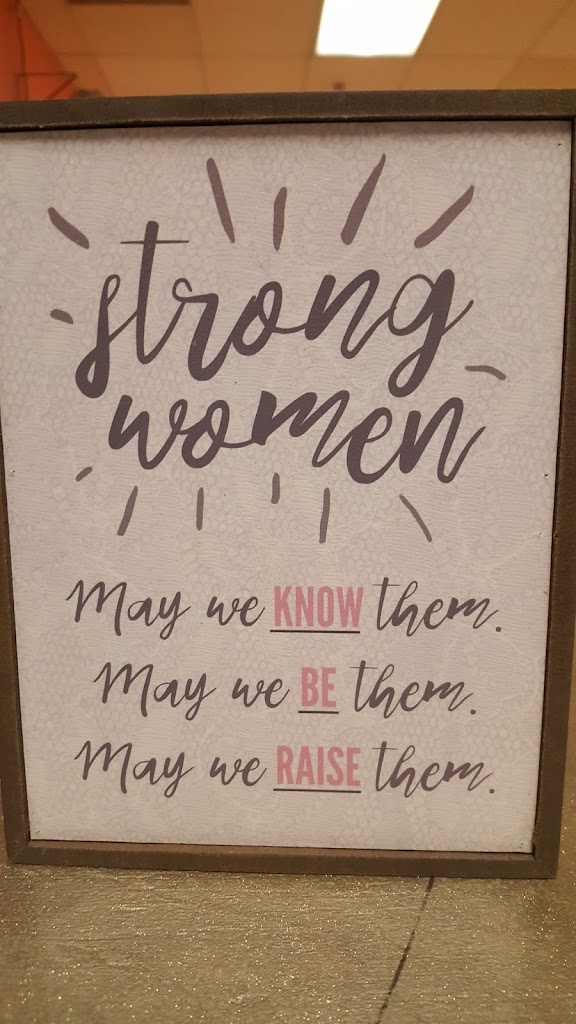 strong
women
May we KNOW them.
May we BE them.
May we RAISE them.